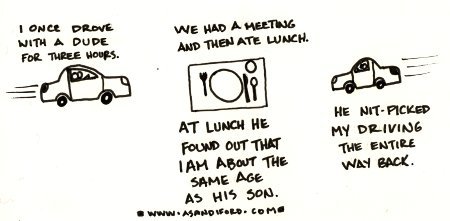 I ONCE DROVE
WITH A DUDE
FOR THREE HOURS.
WE HAD A MEETING
AND THEN ATE LUNCH.
AT LUNCH HE
FOUND OUT THAT
I AM ABOUT THE
SAME AGE
AS HIS SON.
HE NIT-PICKED
MY DRIVING
THE ENTIRE
WAY BACK.
WWW.ASANDIFORD.COM